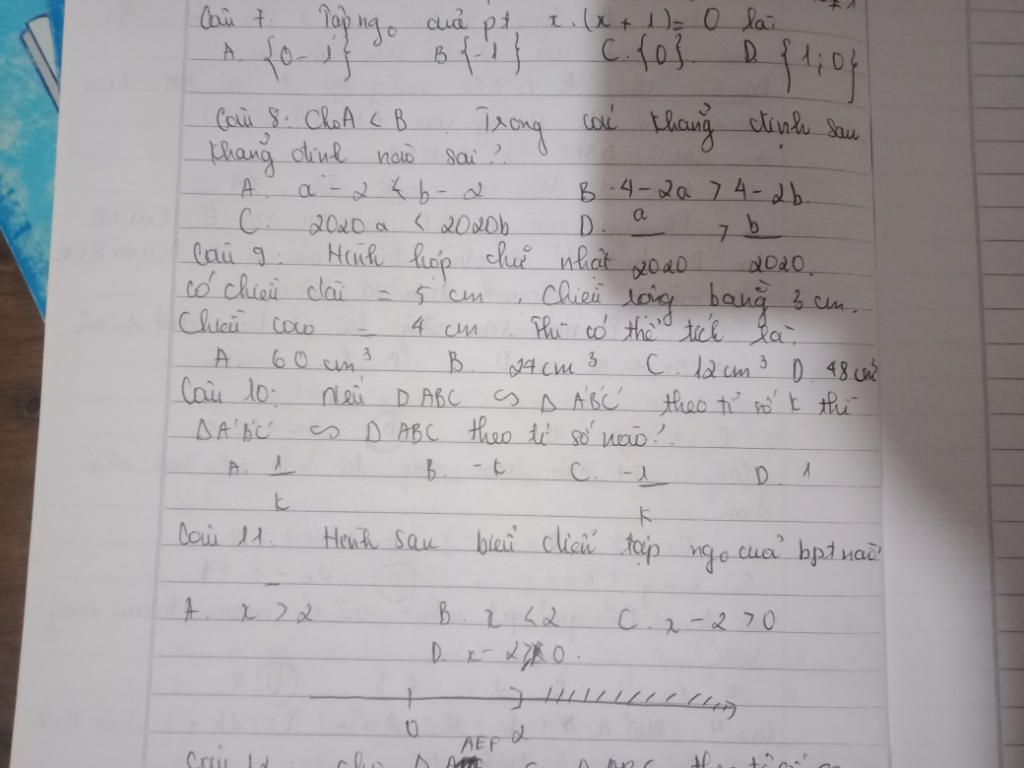 Câu 7. Tập ngo của pt x.(x+1)=0 là:
A. {0-1} B {-1} C.{0}. D. {1;0}
Câu 8: ChoA < B. Trong các khẳng định sau
khẳng định nào sai?
A. a-2 < b-2 B.4-2a > 4-2b.
C. 2020a < 2020b D. a/2020 > b/2020.
Câu 9: Hình hộp chữ nhật
có chiều dài = 5 cm, chiều rộng bằng 3 cm.
Chiều cao = 4 cm. Thì có thể tích là:
A. 60 cm³ B. 24cm³ C 12cm³ D. 48cm³
Câu 10: Nếu ΔABC ∽ ΔA'B'C' theo tỉ số k thì
ΔA'B'C' ∽ ΔABC theo tỉ số nào?
A. 1/k B. -k C. -1/k D. 1
Câu 11. Hình sau biểu diễn tập ngo của bpt nào?
A. x > 2 B. x < 2 C. x-2 > 0
D. x-2 0.
0 2
AEF